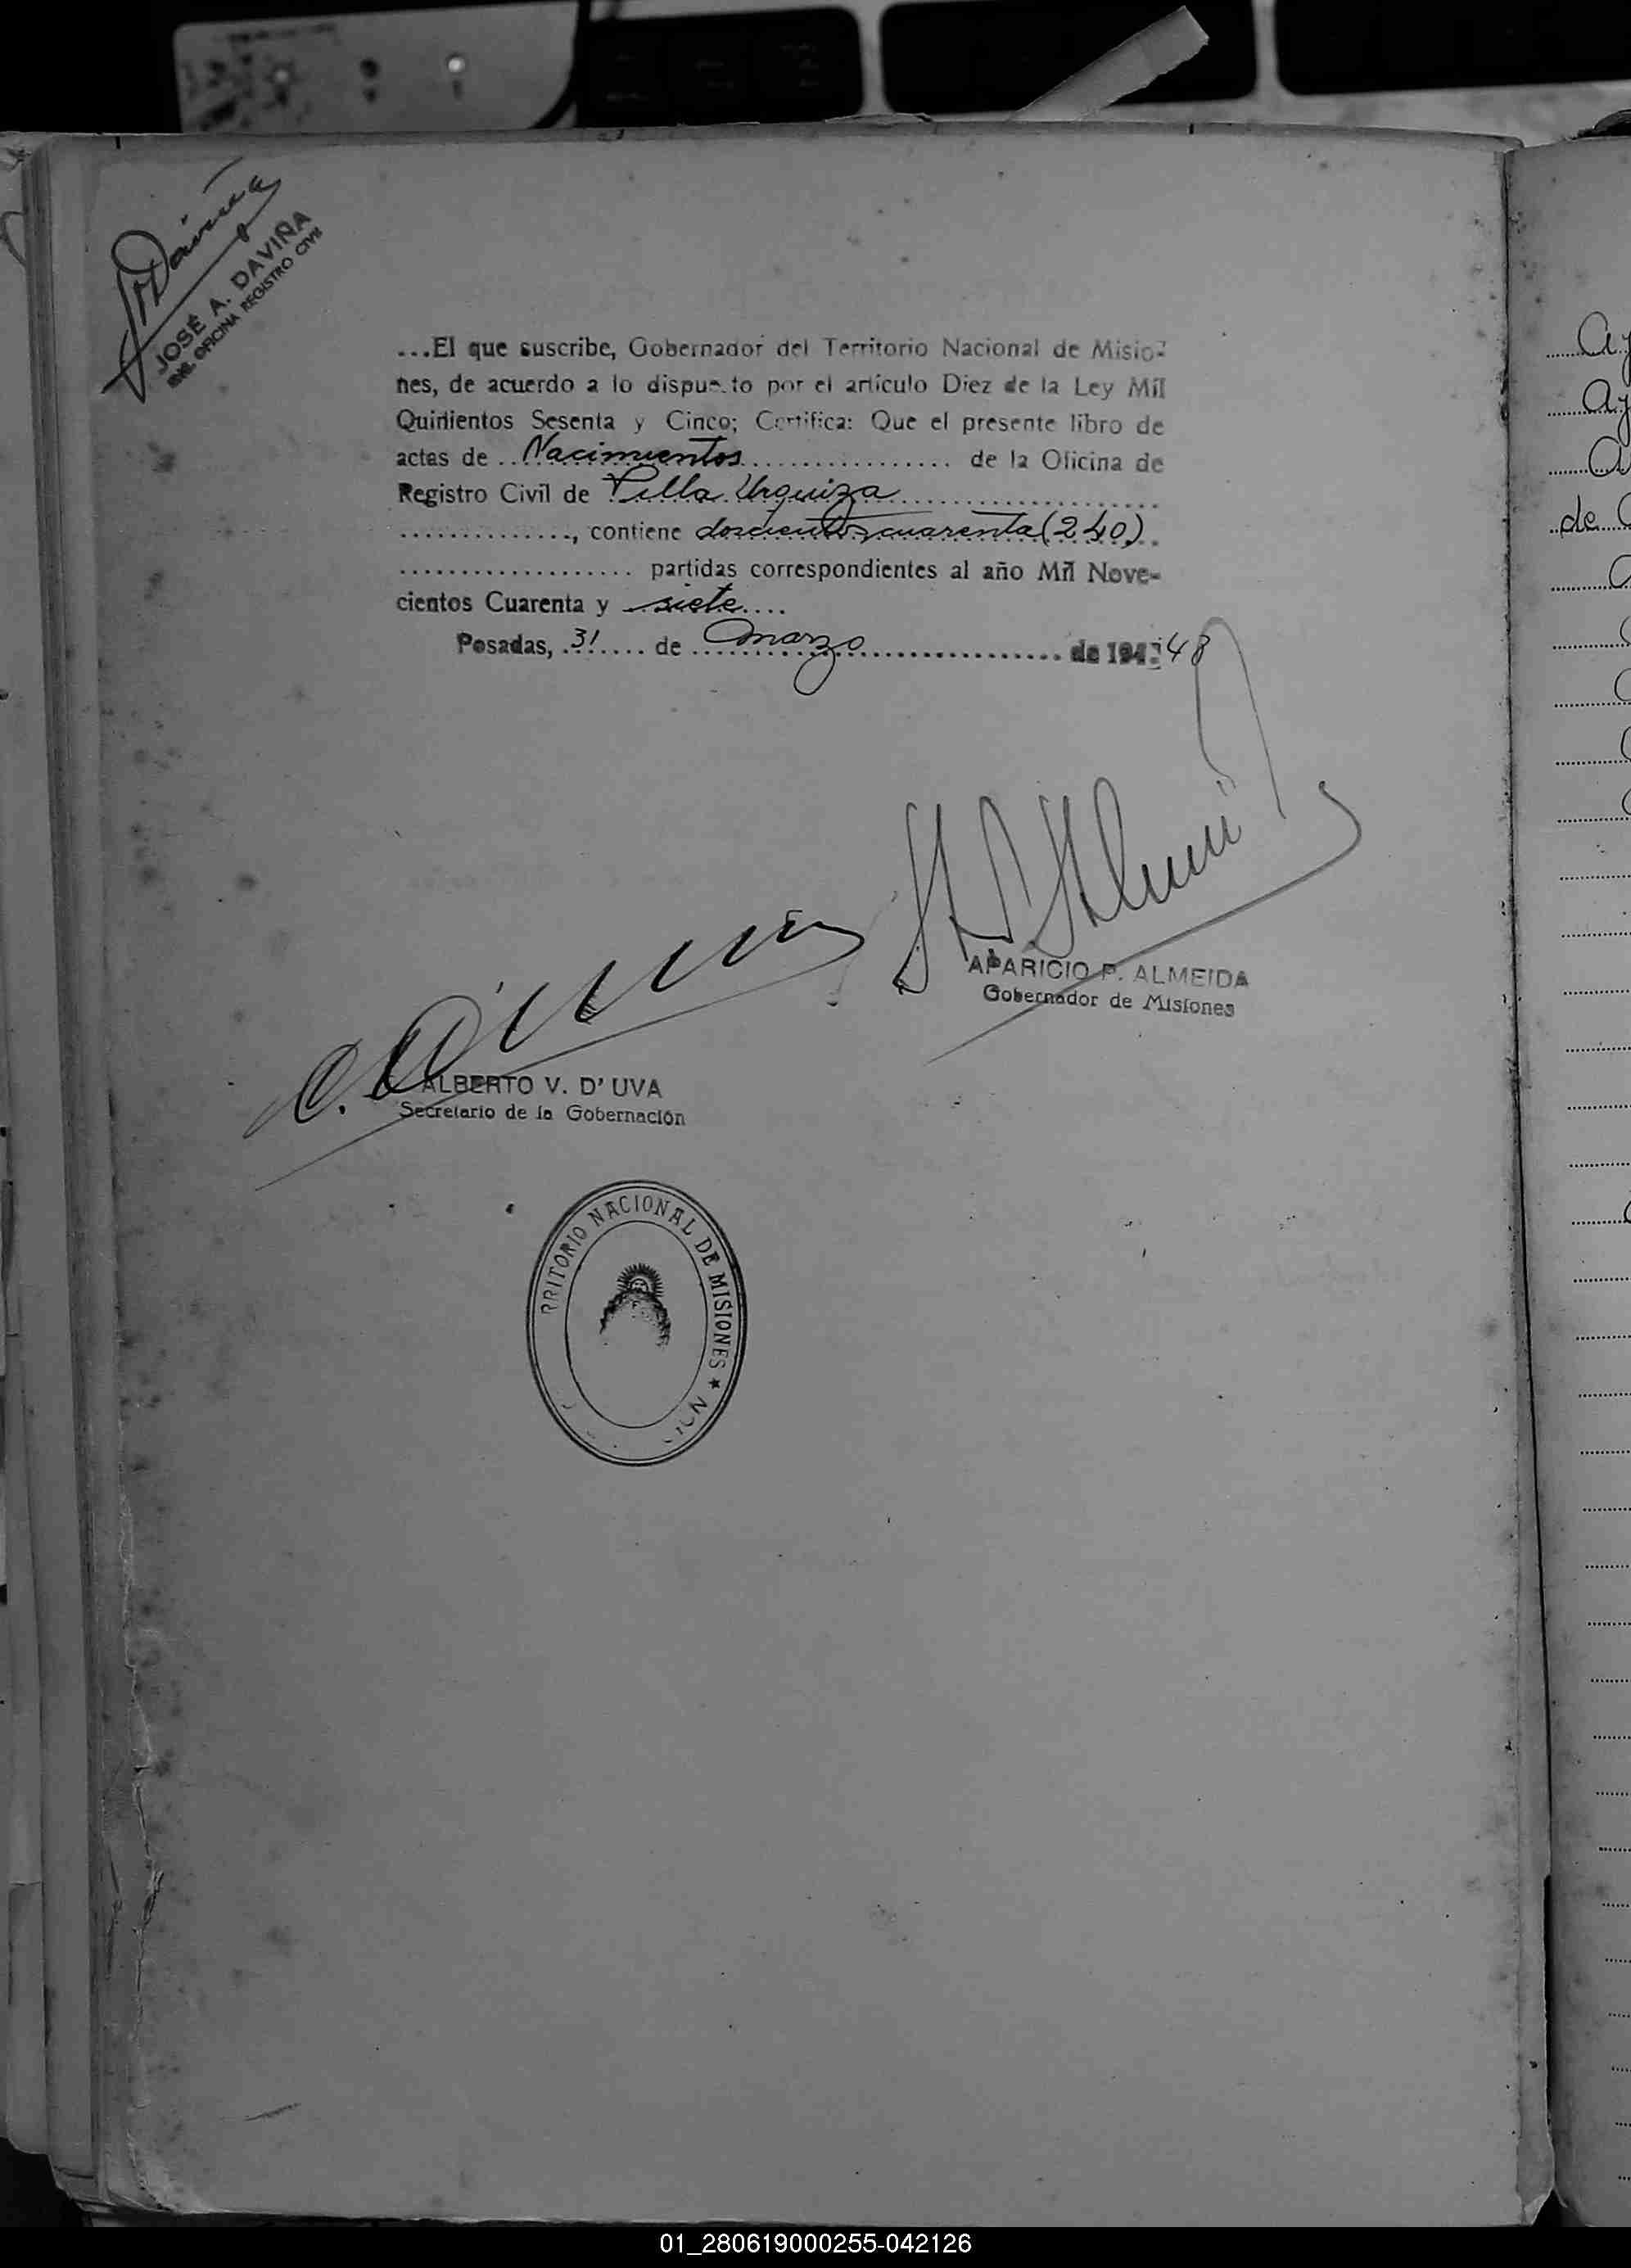 JOSÉ A. DAVIÑA
OFICINA REGISTRO CIVIL
...El que suscribe, Gobernador del Territorio Nacional de Misio-
nes, de acuerdo a lo dispuesto por el artículo Diez de la Ley Mil
Quinientos Sesenta y Cinco; Certifica: Que el presente libro de
actas de Nacimientos de la Oficina de
Registro Civil de Villa Urquiza
, contiene doscientos cuarenta (240)
partidas correspondientes al año Mil Nove-
cientos Cuarenta y siete
Posadas, 31 de marzo de 194 48
APARICIO P. ALMEIDA
Gobernador de Misiones
ALBERTO V. D' UVA
Secretario de la Gobernación
RRITORIO NACIONAL DE MISIONES ★
Ay
Ay
de
01_280619000255-042126